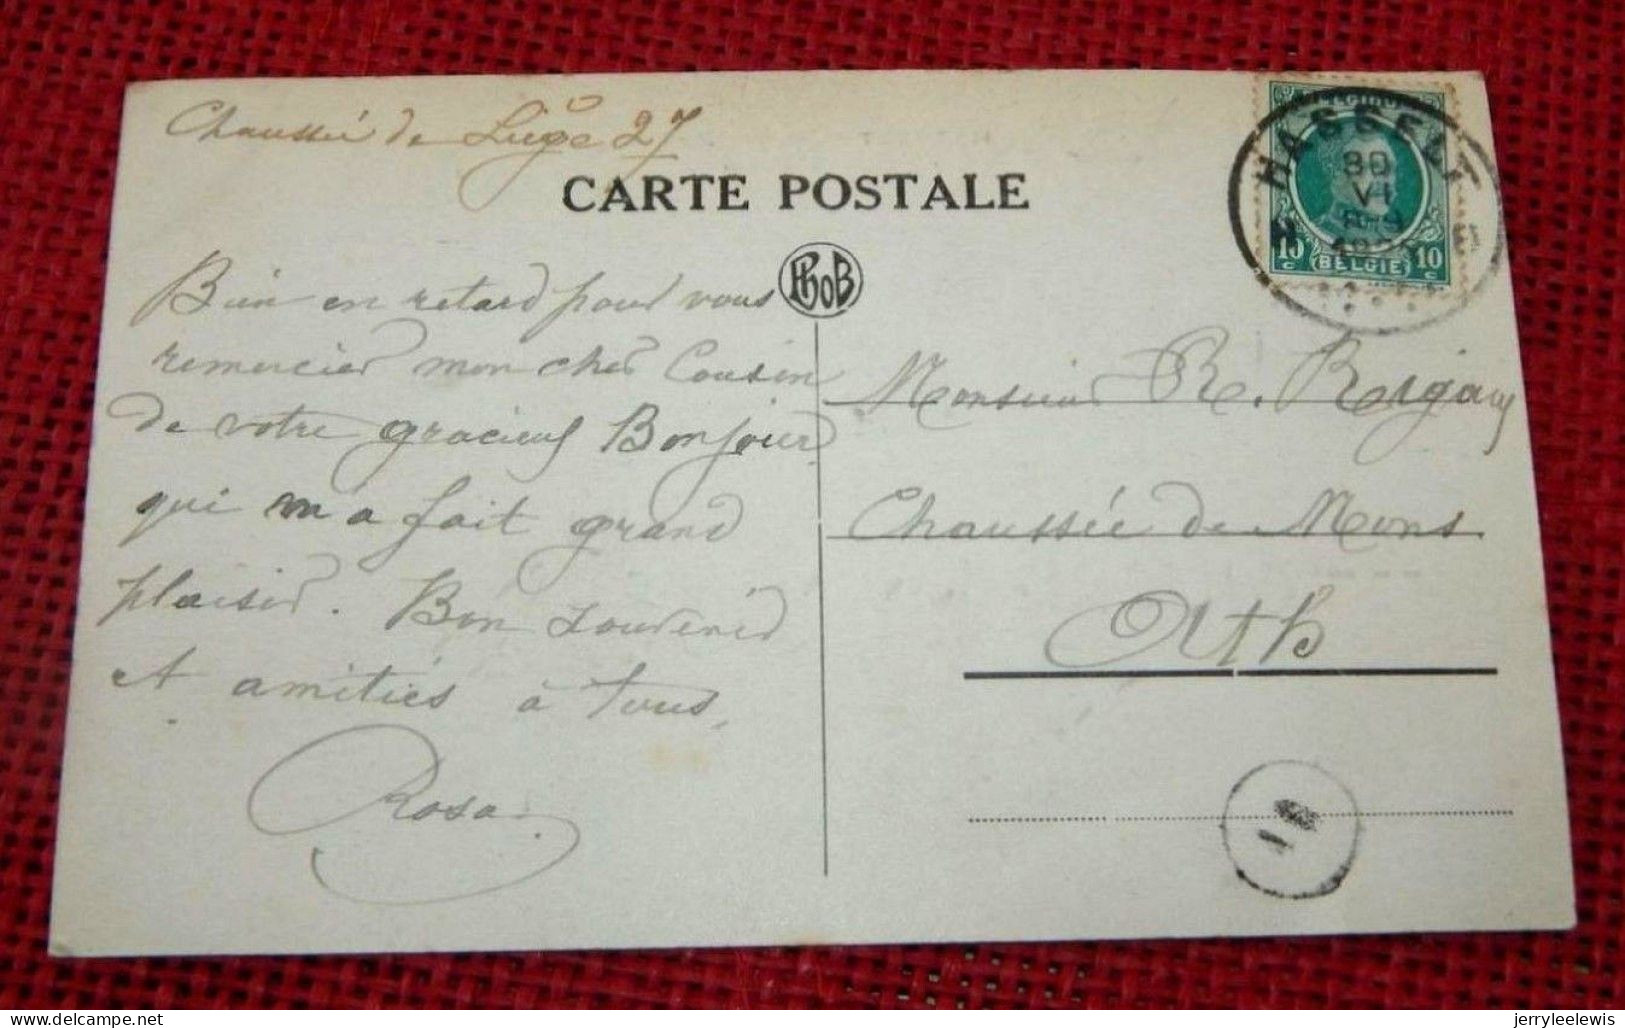 Chaussée de Liège 27
CARTE POSTALE
PhoB
Bien en retard pour vous
remercier mon cher Cousin
de votre gracieux Bonjour
qui m a fait grand
plaisir. Bon Souvenir
et amitiés à tous,
Rosa
HASSELT
30
VI
10 c BELGIE 10 c
Monsieur R.
Chaussée de Mons
Ath
Delcampe.net
jerryleelewis